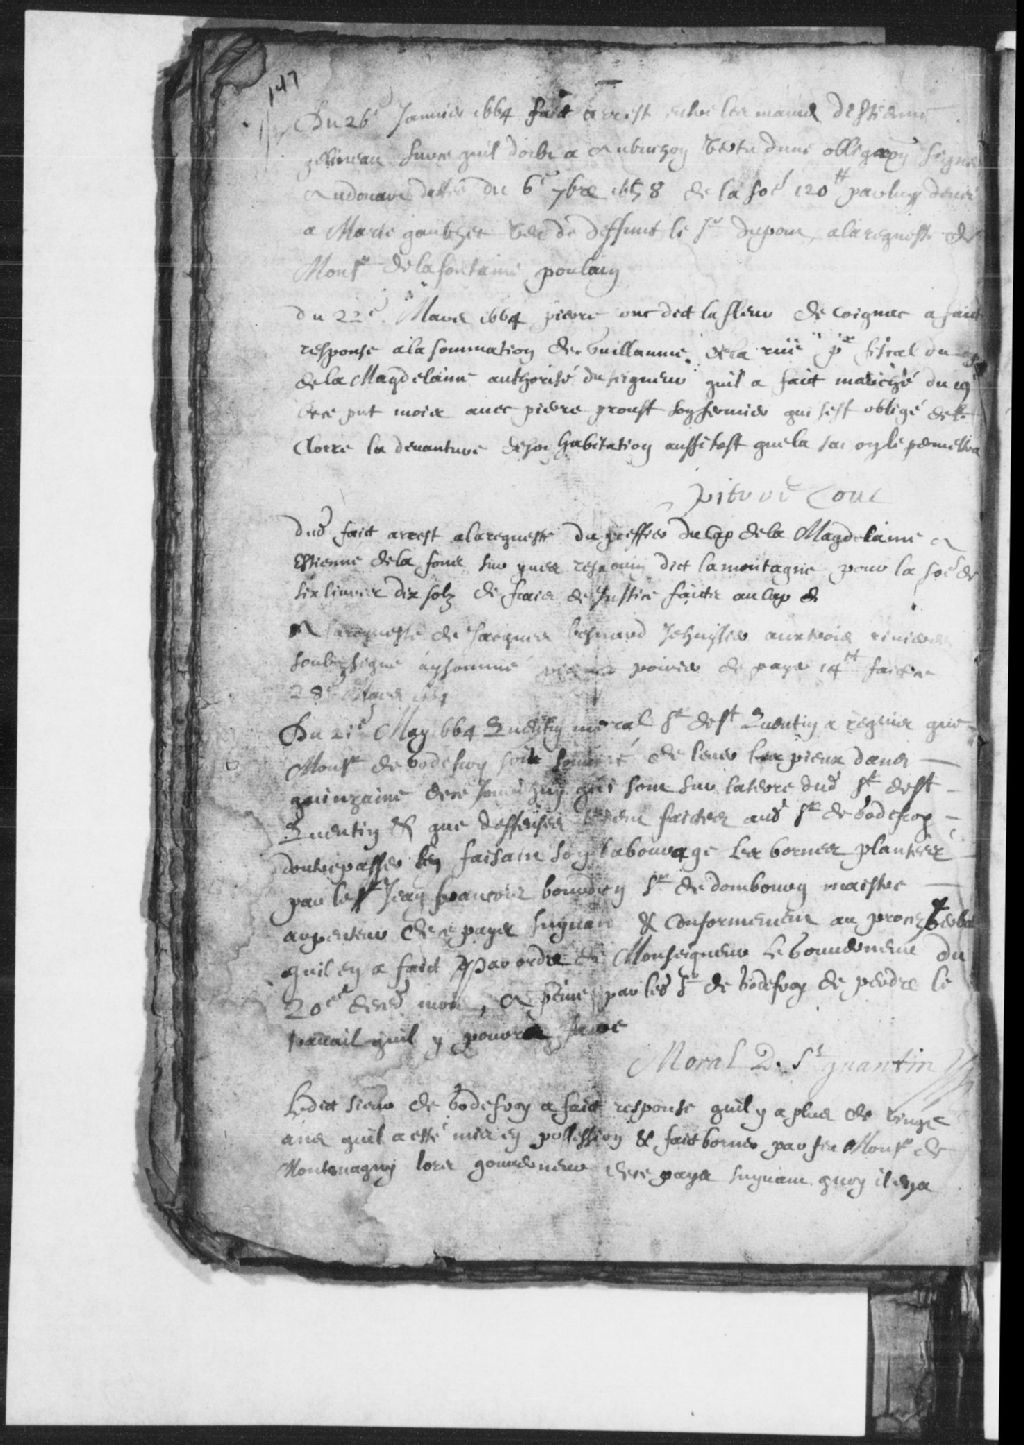 147
Du 26e Janvier 1664 faict arrest entre les mains destienne
gelineau sur ce quil doibt a aubuchon vertu dune obligaõn signé
audouart dattée du 6e 7bre 1658 de la soẽ 120tt
a Marie gaultier vefe de deffunt le sr dupont, a la requeste de
Monsr de la fontaine poulain
du 22e Mars 1664 pierre couc dict la fleur de coignac a faict
response a la sommation de Guillaume de la rüe pr fiscal du cap
de la Magdelaine authorisé du seigneur quil a fait marché du 19
de ce pnt mois avec pierre proust son fermier qui sest obligé de
Clorre la devanture de son habitation aussitost que la saison le permettra
pierre Couc
dud faict arrest a la requeste du greffier du Cap de la Magdelaine a
Estienne de la fons sur yves dict la montagne pour la soẽ de
six livres dix solz de frais de Justice faicte au Cap de
A la requeste de Jacques besnard Jehuissier aux trois rivieres
soubzsigné a sommé poirier de payer 14tt faict ce
28e Mars 1664
Du 21e May 1664 Quentin moral sr de st Quentin a requis que
Monsr de Godefroy soit sommé de lever les pieux dans
quinzaine de ce Jourdhuy qui sont sur la terre dud sr de st
Quentin & que deffenses soient faictes aud sr de Godefroy
doutrepasser en faisant son labourage les bornes plantées
par le sr Jean francois bourdon sr de dombourg maistre
arpenteur de ce pays suyvant & Conformement au proces verbal
quil en a faict par ordre de Monseigneur le Gouverneur du
20e de ce mois, a peine par led sr de Godefroy de perdre le
travail quil y pourra faire
Moral De St quantin
Ledict sieur de Godefroy a faict response quil y a plus de vingt
ans quil a esté mis en possession & faict borner par feu Monsr de
Montmagny lors gouverneur de ce pays suyvant quoy il en a